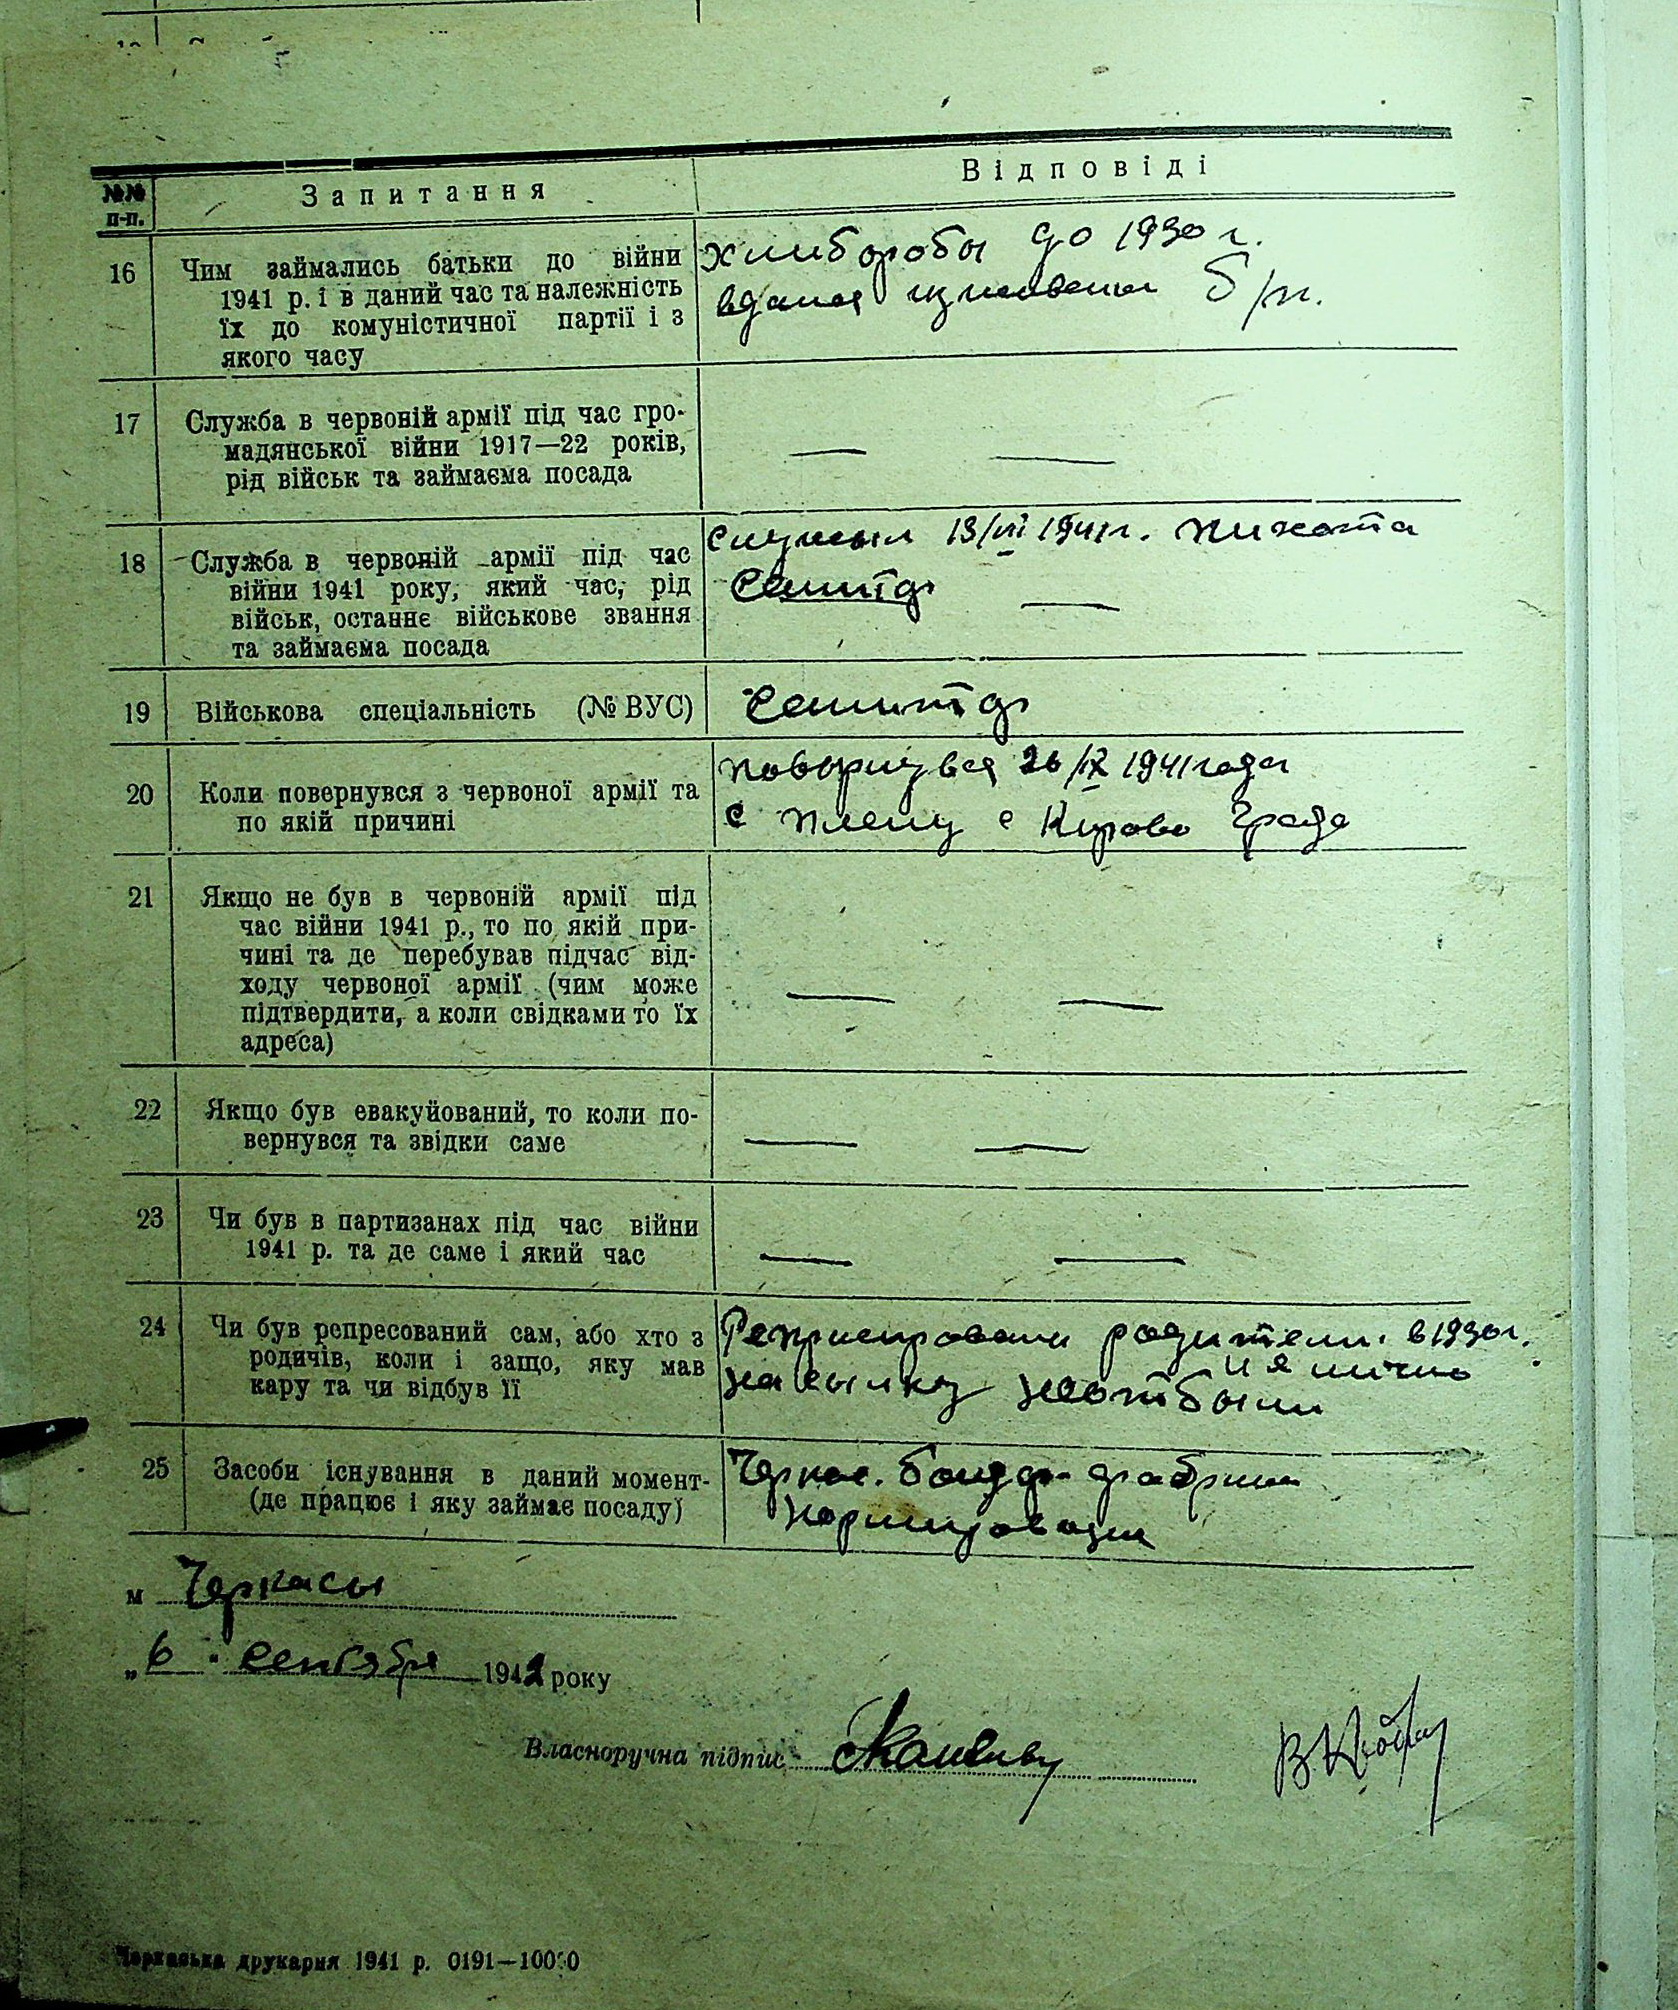 №№ п-п.
Запитання
Відповіді
16
Чим займались батьки до війни
1941 р. і в даний час та належність
їх до комуністичної партії і з
якого часу
хлиборобы до 1930 г.
б/п.
17
Служба в червоній армії під час гро-
мадянської війни 1917—22 років,
рід військ та займаєма посада
— —
18
Служба в червоній армії під час
війни 1941 року, який час, рід
військ, останнє військове звання
та займаєма посада
служыл 13/VII 1941 г. пихота
—
19
Військова спеціальність (№ ВУС)
20
Коли повернувся з червоної армії та
по якій причині
повернувся 26/IX 1941 года
с плену с Кирово Града
21
Якщо не був в червоній армії під
час війни 1941 р., то по якій при-
чині та де перебував підчас від-
ходу червоної армії (чим може
підтвердити, а коли свідками то їх
адреса)
— —
22
Якщо був евакуйований, то коли по-
вернувся та звідки саме
— —
23
Чи був в партизанах під час війни
1941 р. та де саме і який час
— —
24
Чи був репресований сам, або хто з
родичів, коли і защо, яку мав
кару та чи відбув її
Репрысированы родители в 1930 г.
и я лично
насылку неотбыли
25
Засоби існування в даний момент
(де працює і яку займає посаду)
Черкас. бонд. фабрика
нормировщик
м Черкасы
„6. сентября 1942 року
Власноручна підпис
Черкаська друкарня 1941 р. 0191—10000